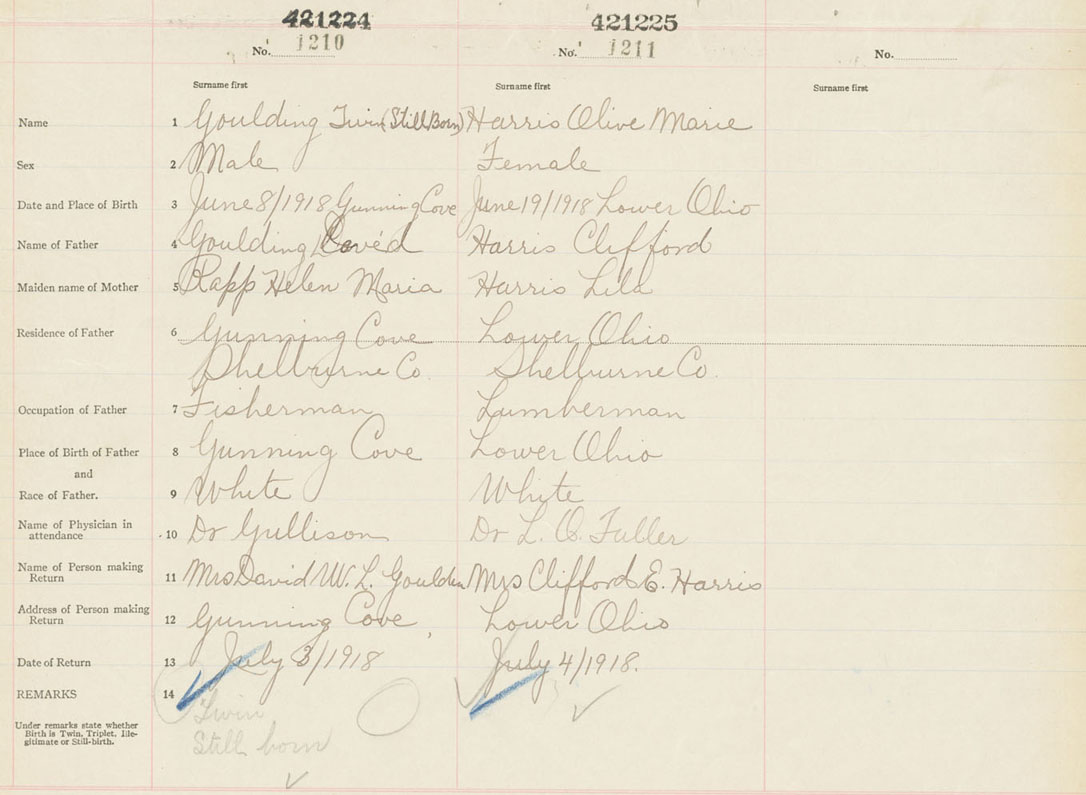 421224 421225
No. 1210 No. 1211 No.
Surname first Surname first Surname first
Name 1 Goulding Twin (Still Born) Harris Olive Marie
Sex 2 Male Female
Date and Place of Birth 3 June 8/1918 Gunning Cove June 19/1918 Lower Ohio
Name of Father 4 Goulding Harris Clifford
Maiden name of Mother 5 Rapp Helen Maria Harris Lila
Residence of Father 6 Gunning Cove Lower Ohio
Shelburne Co. Shelburne Co.
Occupation of Father 7 Fisherman Lumberman
Place of Birth of Father 8 Gunning Cove Lower Ohio
and
Race of Father. 9 White White
Name of Physician in
attendance 10 Dr Gullison Dr L. O. Fuller
Name of Person making
Return 11 Mrs David W. L. Goulding Mrs Clifford E. Harris
Address of Person making
Return 12 Gunning Cove Lower Ohio
Date of Return 13 July 3/1918 July 4/1918.
REMARKS 14
Twin
Under remarks state whether
Birth is Twin, Triplet, Ille-
gitimate or Still-birth.
Still born